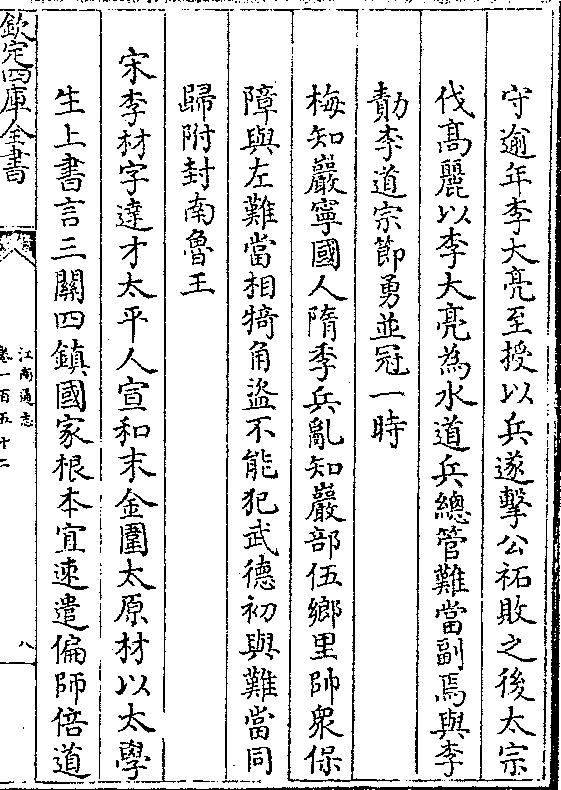 守逾年李大亮至授以兵遂擊公祏敗之後太宗
伐髙麗以李大亮為水道兵總管難當副焉與李
勣李道宗節勇並冠一時
梅知巖寧國人隋季兵亂知巖部伍鄉里帥衆保
障與左難當相犄角盜不能犯武德初與難當同
歸附封南魯王
宋李材字達才太平人宣和末金圍太原材以太學
生上書言三關四鎮國家根本宜速遣偏師倍道
欽定四庫全書
江南通志
卷一百五十二
八